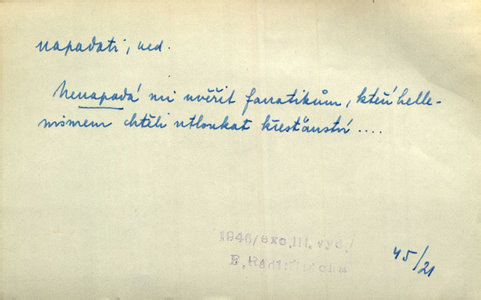 napadati, ned.
Nenapadá mi uvěřit fanatikům, kteří helle-
nismem chtěli utloukat křesťanství ....
1946/exo.III.vyd./
E.
45/21